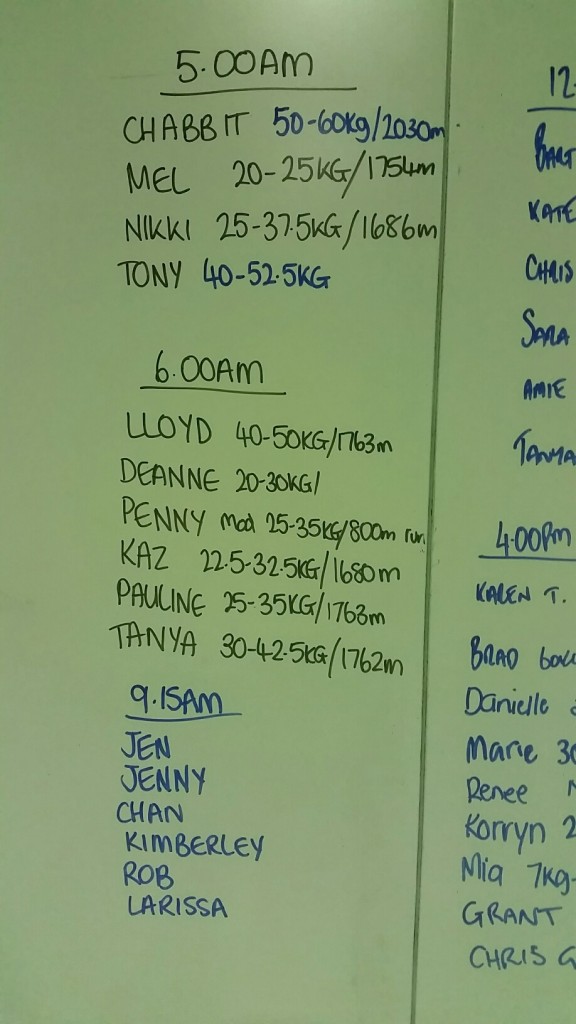 5.00AM
CHABBIT 50-60Kg/2030m
MEL 20-25KG/1754m
NIKKI 25-37.5KG/1686m
TONY 40-52.5KG
6.00AM
LLOYD 40-50KG/1763m
DEANNE 20-30KG/
PENNY mod 25-35KG/800m run
KAZ 22.5-32.5KG/1680m
PAULINE 25-35KG/1763m
TANYA 30-42.5KG/1762m
9.15AM
JEN
JENNY
CHAN
KIMBERLEY
ROB
LARISSA
12.
BART
KATE
CHRIS
SARA
AMIE
TANYA
4.00PM
KAREN T.
BRAD
Danielle
Marie
Renee
Korryn 2
Mia 7Kg-
GRANT
CHRIS G